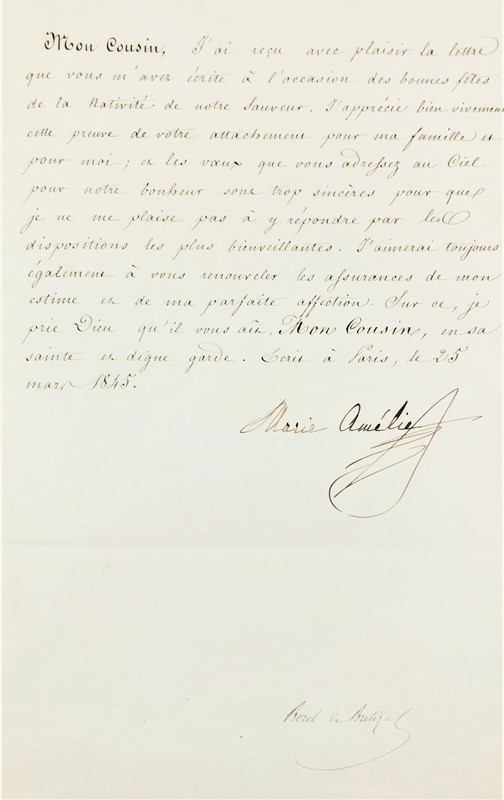 Mon Cousin, J'ai reçu avec plaisir la lettre
que vous m'avez écrite à l'occasion des bonnes fêtes
de la Nativité de notre Sauveur. J'apprécie bien vivement
cette preuve de votre attachement pour ma famille et
pour moi; et les vœux que vous adressez au Ciel
pour notre bonheur sont trop sincères pour que
je ne me plaise pas à y répondre par les
dispositions les plus bienveillantes. J'aimerai toujours
également à vous renouveler les assurances de mon
estime et de ma parfaite affection. Sur ce, je
prie Dieu qu'il vous ait, Mon Cousin, en sa
sainte et digne garde. Ecrit à Paris, le 25
mars 1845.
Marie Amélie
Borel de Bretizel